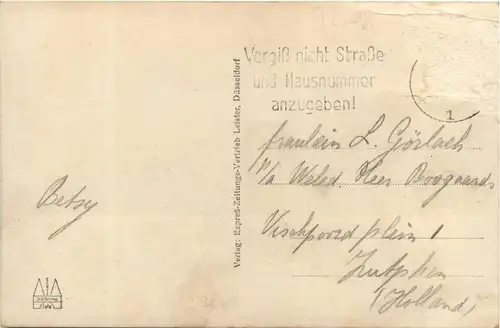 Vergiß nicht Straße
und Hausnummer
anzugeben!
1
Verlag: Expreß-Zeitungs-Vertrieb Leister, Düsseldorf
Betsy
Fräulein L. Görlach
p/a Weled. Heer Boogaards
Vischpoordplein 1
Zutphen
(Holland)